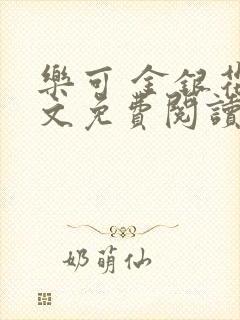 樂可 金銀花
文免費閱讀
奶萌仙